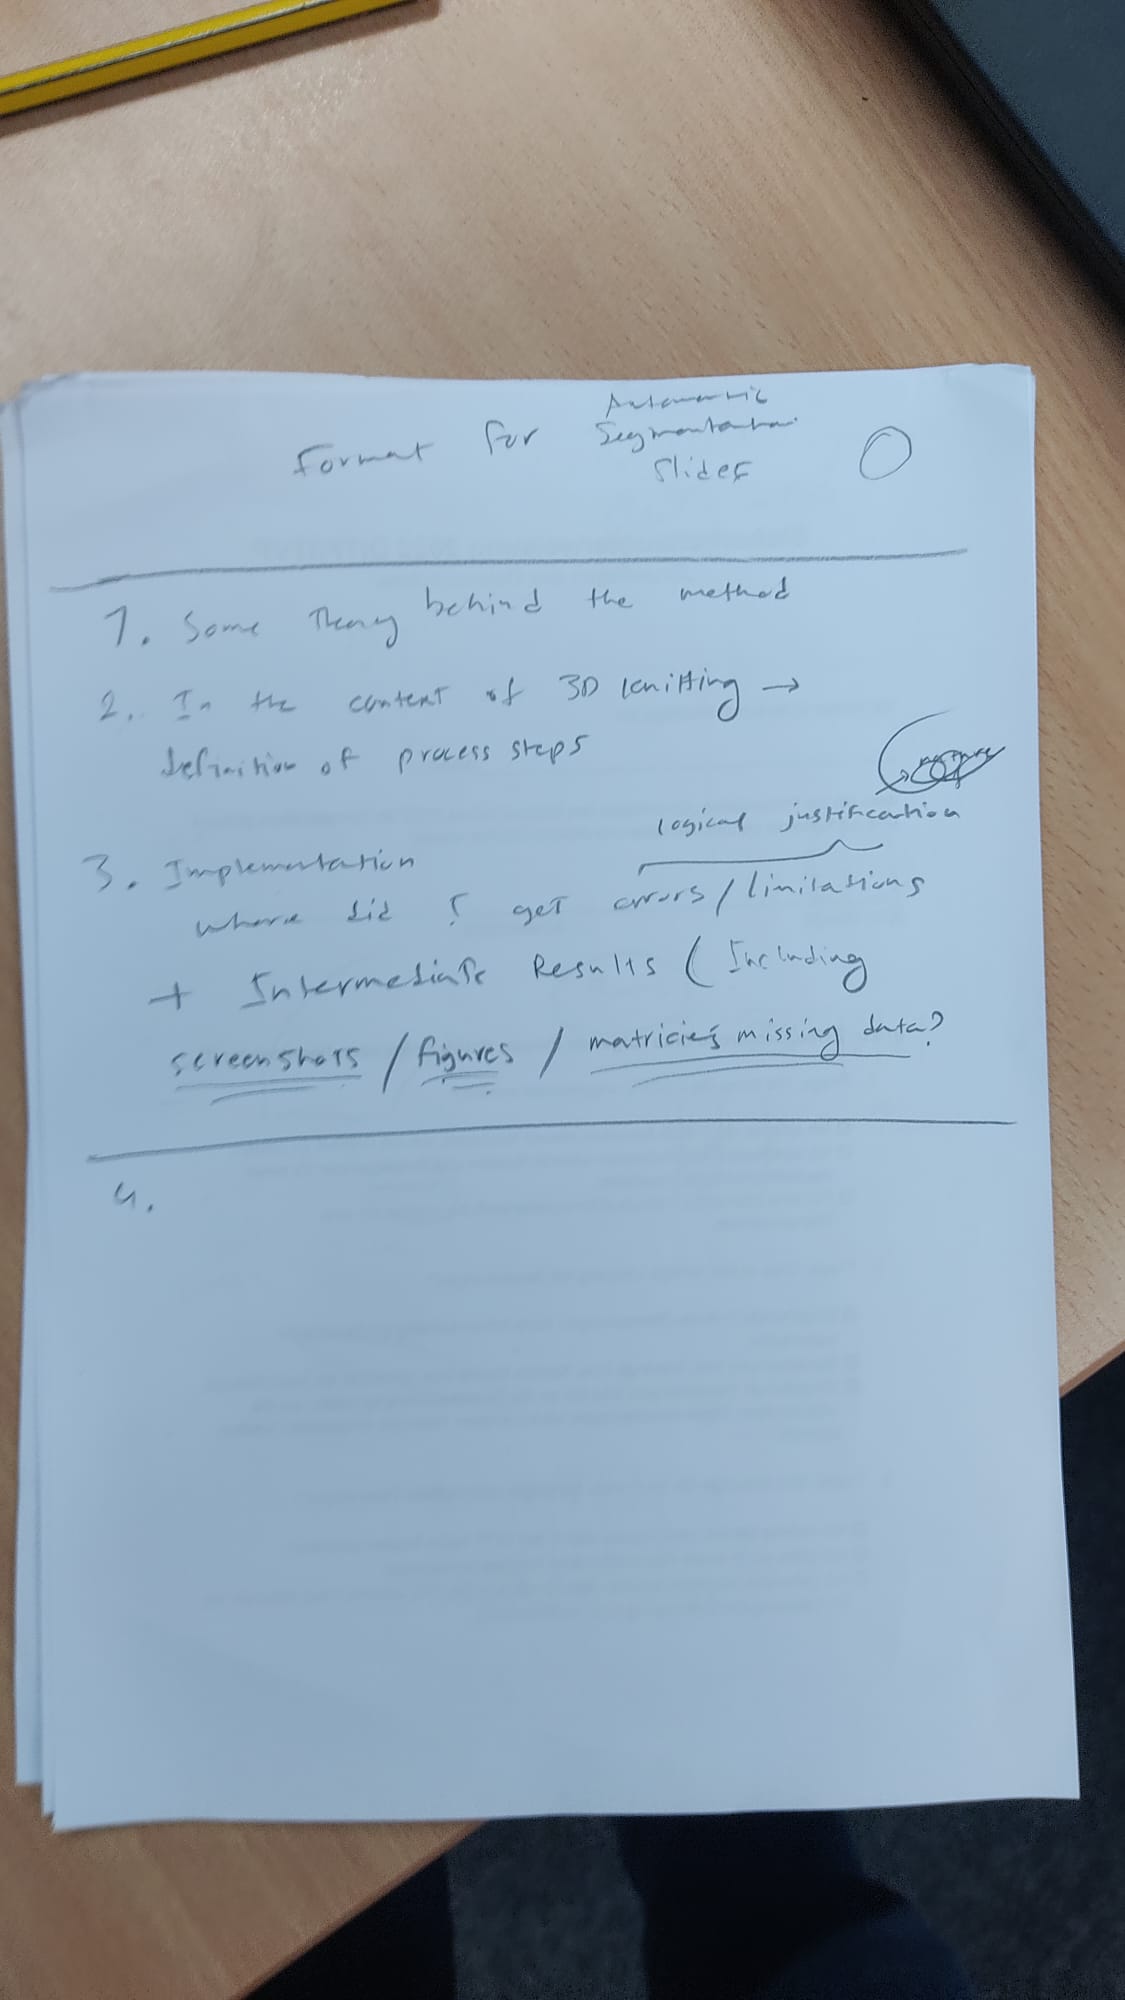 Format for Automatic
Segmentation
Slides
1. Some Theory behind the method
2. In the context of 3D knitting →
definition of process steps
logical justification
3. Implementation
where did I get errors/limitations
+ Intermediate Results (Including
screenshots / figures / matricies missing data?
4.